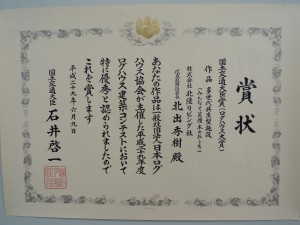 賞状
国土交通大臣賞(ログハウス大賞)
作品 多世代共生型施設
株式会社 北陸リビング社
代表取締役社長 北出秀樹 殿
あなたの作品は一般社団法人日本ログ
ハウス協会が主催した平成二十九年度
ログハウス建築コンテストにおいて
特に優秀と認められましたので
これを賞します
平成二十九年六月九日
国土交通大臣 石井啓一